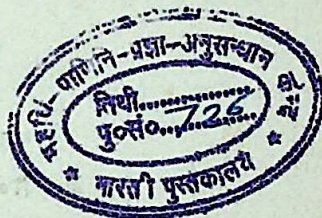 महर्षि-पाणिनि-प्रज्ञा-अनुसन्धान
तिथी..............
पु०सं०...726......
* भारती पुस्तकालय *